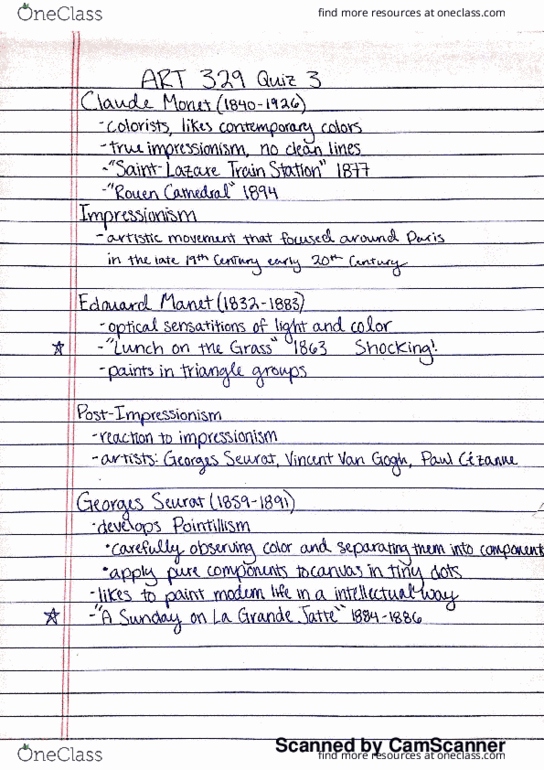 OneClass find more resources at oneclass.com
ART 329 Quiz 3
Claude Monet (1840-1926)
-colorists, likes contemporary colors
-true impressionism, no clean lines
-"Saint-Lazare Train Station" 1877
-"Rouen Cathedral" 1894
Impressionism
-artistic movement that focused around Paris
in the late 19th Century early 20th Century
Edouard Manet (1832-1883)
-optical sensatitions of light and color
☆ -"Lunch on the Grass" 1863 Shocking!
-paints in triangle groups
Post-Impressionism
-reaction to impressionism
-artists: Georges Seurat, Vincent Van Gogh, Paul Cézanne
Georges Seurat (1859-1891)
-develops Pointillism
•carefully observing color and separating them into components
•apply pure components to canvas in tiny dots
-likes to paint modern life in a intellectual way
☆ -"A Sunday on La Grande Jatte" 1884-1886
Scanned by CamScanner
OneClass find more resources at oneclass.com